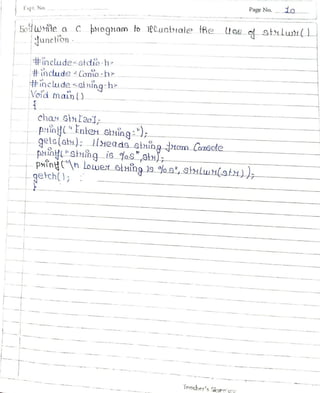 Expt. No.
Page No. 10
Write a C program to illustrate the Use of strlwr()
function.
#include<stdio.h>
#include<Conio.h>
#include<string.h>
Void main()
{
char str[20];
printf("Enter string:");
gets(str); //reads string from Console
printf("string is %s",str);
printf("\n Lower string is %s", strlwr(str));
getch();
}
Teacher's